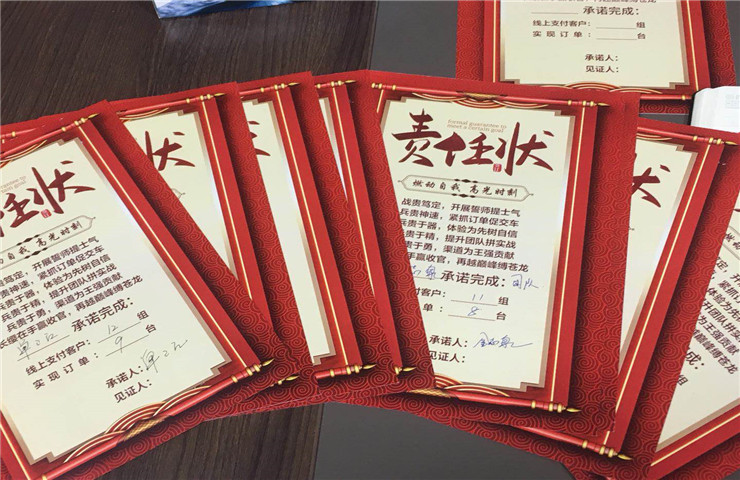 承诺完成：
线上支付客户：组
实现订单：台
承诺人：
见证人：
责任状
燃动自我 高光时刻
开展誓师提士气
紧抓订单促交车
兵贵于器，体验为先树自信
兵贵于精，提升团队拼实战
兵贵于勇，渠道为王强贡献
长缨在手赢收官，再越巅峰缚苍龙
承诺完成：
线上支付客户：12 组
实现订单：9 台
承诺人：
见证人：
责任状
formal guarantee to
meet a certain goal
燃动自我 高光时刻
战贵笃定，开展誓师提士气
兵贵神速，紧抓订单促交车
兵贵于器，体验为先树自信
贵于精，提升团队拼实战
贵于勇，渠道为王强贡献
手赢收官，再越巅峰缚苍龙
承诺完成：团队
付客户：11 组
单：8 台
承诺人：
见证人：